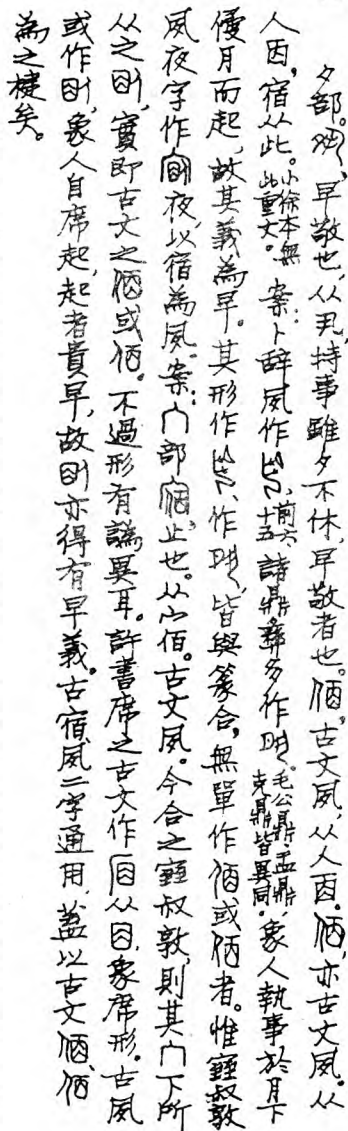 夕部。早敬也，从丮，持事雖夕不休，早敬者也。𠈇，古文夙，从人𠧪。亦古文夙。从
人因，宿从此。小徐本無此重文。案：卜辭夙作前六、十五，諸鼎彝多作。毛公鼎、盂鼎、克鼎皆異同。象人執事於月下
侵月而起，故其義為早。其形作、作，皆與篆合，無單作或者。惟窒叔敦
夙夜字作夜，以宿為夙。案：宀部，止也。从宀佰。古文夙。今合之窒叔敦，則其宀下所
从之，實即古文之或。不過形有譌異耳。許書席之古文作从，象席形。古夙
或作，象人自席起，起者貴早，故亦得有早義。古宿、夙二字通用，蓋以古文、
為之楗矣。